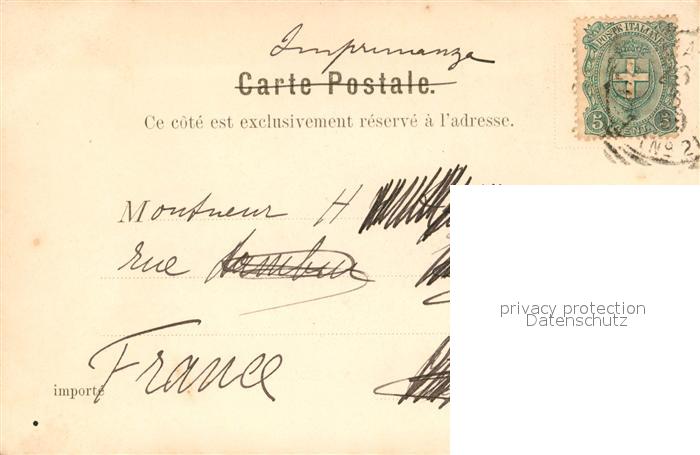 Imprimanza
Carte Postale.
Ce côté est exclusivement réservé à l'adresse.
POSTE ITALIANE
5 5
(Nº 2)
Monsieur H
rue
France
importé
privacy protection
Datenschutz